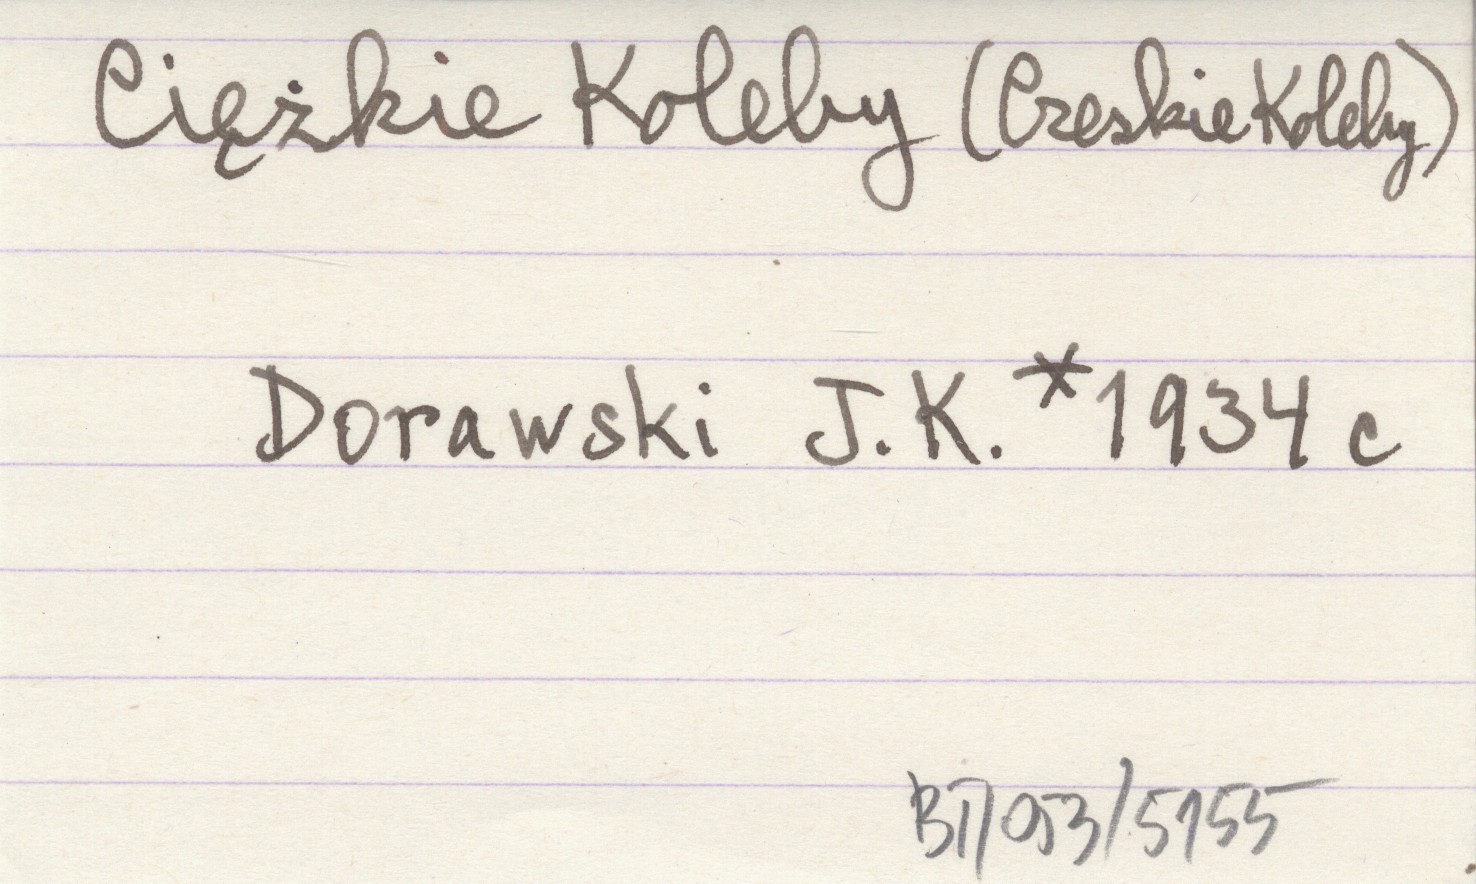 Ciężkie Koleby (Czeskie Koleby)
Dorawski J.K.*1934 c
BT/053/5155